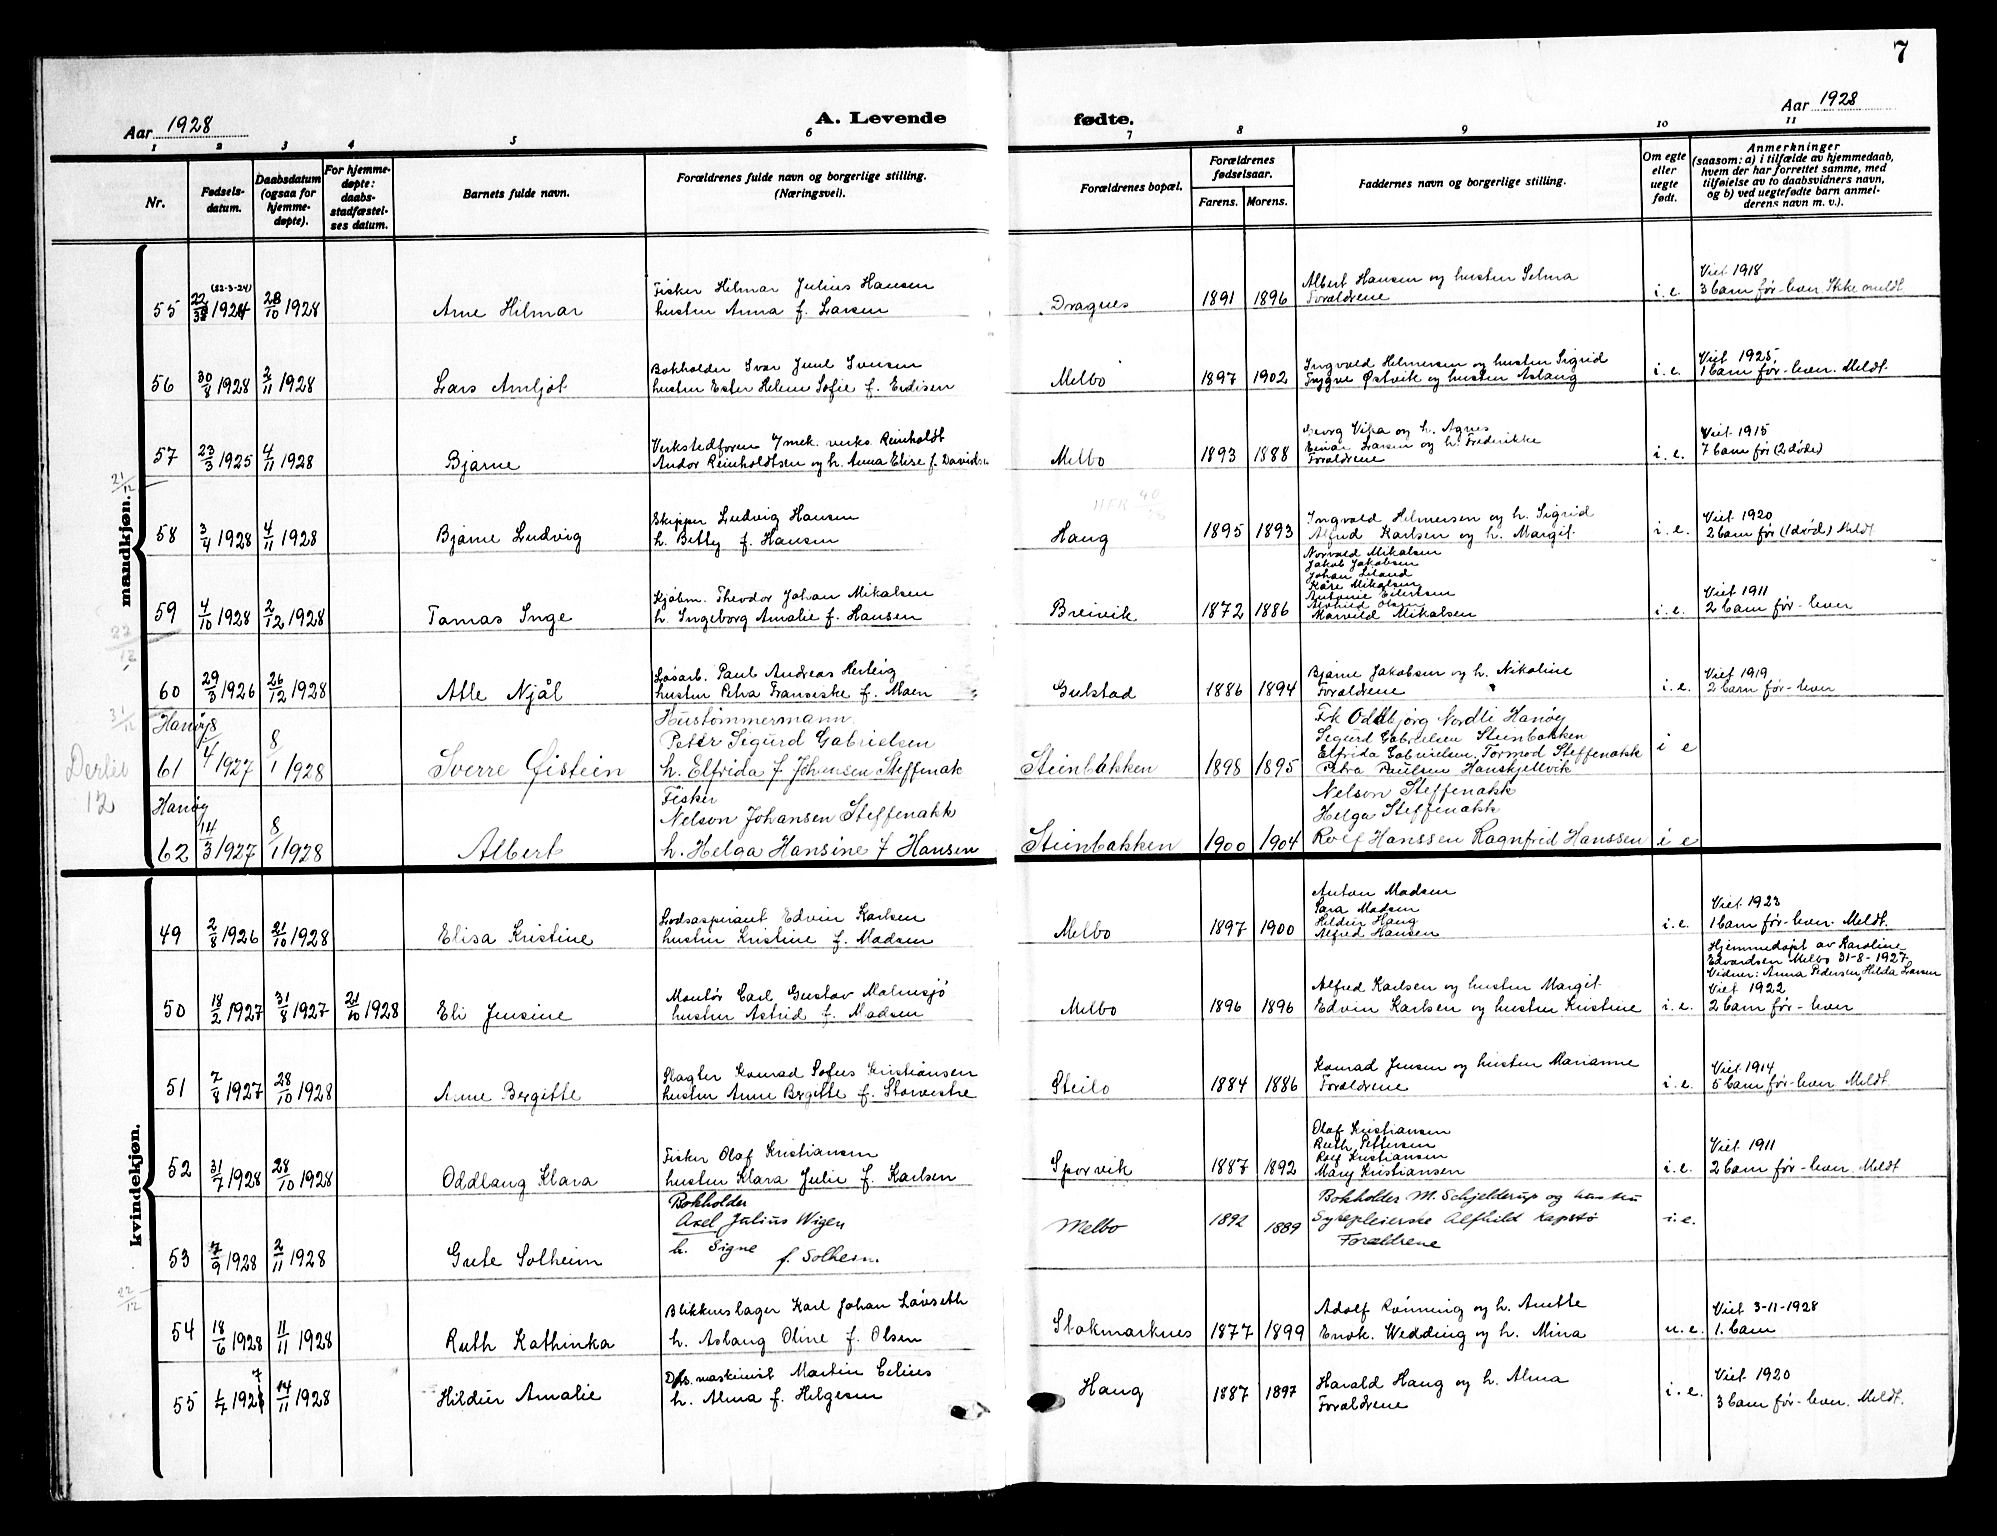 7
Aar 1928
A. Levende
fødte.
Aar 1928
1 2 3 4 5 6 7 8 9 10 11
Nr.
Fødsels-
datum.
Daabsdatum
(ogsaa for
hjemme-
døpte).
For hjemme-
døpte:
daabs-
stadfæstel-
ses datum.
Barnets fulde navn.
Forældrenes fulde navn og borgerlige stilling.
(Næringsvei).
Forældrenes bopæl.
Forældrenes
fødselsaar.
Farens. Morens.
Faddernes navn og borgerlige stilling.
Om egte
eller
uegte
født.
Anmerkninger
(saasom: a) i tilfælde av hjemmedaab,
hvem der har forrettet samme, med
tilføielse av to daabsvidners navn,
og b) ved uegtefødte barn anmel-
derens navn m. v.).
mandkjøn.
(22-3-24)
55 22/3 1924 28/10 1928 Arne Hilmar
Fisker Hilmar Julius Hansen
hustru Anna f. Larsen
Dragnes 1891 1896
Albert Hansen og hustru Selma
Forældrene
i. e.
Viet 1918
3 barn før - lever. Ikke meldt
56 30/8 1928 2/11 1928 Lars Arnljot
Bokholder Ivar Juul Iversen
hustru Ester Helene Sofie f. Evdisen
Melbo 1897 1902
Ingvald Helmersen og hustru Sigrid
Trygve Østvik og hustru Aslaug
i. e.
Viet 1925
1 barn før - lever. Meldt.
57 23/3 1925 4/11 1928 Bjarne
Verkstedform. v/ mek. verks. Reinholdt
Andor Reinholdtsen og h. Anna Elise f. Davids
Melbo 1893 1888
Georg Vipa og h. Agnes
Einar Larsen og h. Frederikke
Forældrene
i. e.
Viet 1915
7 barn før (2 døde)
21/12
58 3/4 1928 4/11 1928 Bjarne Ludvig
Skipper Ludvig Hansen
h. Betty f. Hansen
Haug 1895 1893
Ingvald Helmersen og h. Sigrid
Alfred Karlsen og h. Margit.
i. e.
Viet 1920
2 barn før (1 død) Meldt
59 4/10 1928 2/12 1928 Tomas Inge
Kjøbm. Theodor Johan Mikalsen
h. Ingeborg Amalie f. Hansen
Breivik 1872 1886
Norvald Mikalsen
Jakob Jakobsen
Johan Siland
Kåre Mikalsen
Antonie Eilertsen
Alvhild Olsen
Marvild Mikalsen
i. e.
Viet 1911
2 barn før - lever
22/12
60 29/3 1926 26/12 1928 Atle Njål
Løsarb. Paul Andreas Herleig
hustru Petra Franseske f. Moen
Gulstad 1886 1894
Bjarne Jakobsen og h. Nikoline
Forældrene
i. e.
Viet 1919
2 barn før - lever
31/12
Hanøy
61 18/4 1927 8/1 1928 Sverre Øistein
Hustømmermann
Peter Sigurd Gabrielsen
h. Elfrida f Johansen Steffenak
Steinbakken 1898 1895
Frk Oddbjørg Nordli Hanøy
Sigurd Gabrielsen Steinbakken
Elfrida Gabrielsen, Tormod Steffenakk
Petra Paulsen Hanskjellvik
i e
Derlev
12
Hanøy
62 14/3 1927 8/1 1928 Albert
Fisker
Nelson Johansen Steffenakk
h. Helga Hansine f Hansen
Steinbakken 1900 1904
Nelson Steffenakk
Helga Steffenakk
Rolf Hanssen Ragnfrid Hanssen
i e
kvindekjøn.
49 2/8 1926 21/10 1928 Elisa Kristine
Lodsaspirant Edvin Karlsen
hustru Kristine f. Madsen
Melbo 1897 1900
Anton Madsen
Sara Madsen
Hildur Haug
Alfred Hansen
i. e.
Viet 1923
1 barn før - lever. Meldt.
50 18/2 1927 31/8 1927 21/10 1928 Eli Jensine
Montør Carl Gustav Malmsjö
hustru Astrid f. Madsen
Melbo 1896 1896
Alfred Karlsen og hustru Margit
Edvin Karlsen og hustru Kristine
i. e.
Hjemmedøpt av Karoline
Edvardsen Melbo 31-8-1927
Vidner: Anna Pedersen, Hilda Larsen
Viet 1922
2 barn før - lever
51 7/8 1927 28/10 1928 Anne Bergitte
Slagter Konrad Sofus Kristiansen
hustru Anne Bergitte f. Storvestre
Steilo 1884 1886
Konrad Jensen og hustru Marianne
Forældrene
i. e.
Viet 1914
5 barn før - lever. Meldt
52 31/7 1928 28/10 1928 Oddlaug Klara
Fisker Olaf Kristiansen
hustru Klara Julie f. Karlsen
Sporvik 1887 1892
Olaf Kristiansen
Ruth Pettersen
Rolf Kristiansen
Mary Kristiansen
i. e.
Viet 1911
2 barn før - lever. Meldt
53 7/9 1928 2/11 1928 Grete Solheim
Bokholder
Axel Julius Wigen
h. Signe f. Solheim.
Melbo 1892 1889
Bokholder M. Schjelderup og hustru
Sykepleierske Alfhild Kapstø
Forældrene
i. e.
22/12
54 18/6 1928 11/11 1928 Ruth Kathinka
Blikkenslager Karl Johan Løvseth
h. Aslaug Oline f. Olsen
Stokmarknes 1877 1899
Adolf Rønning og h. Anette
Enok. Wedding og h. Mina
u. e.
Viet 3-11-1928
1. barn
55 1/7 1927 14/11 1928 Hildur Amalie
Dpsk. maskinist Martin Celius
h. Alma f. Helgesen
Haug 1887 1897
Harald Haug og h. Alma
Forældrene
i. e.
Viet 1920
3 barn før - lever. Meldt.